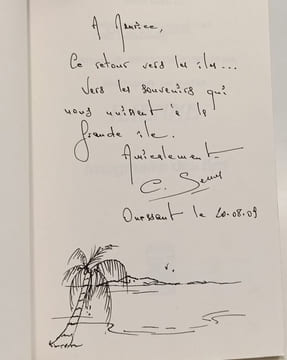 A Maurice,
Ce retour vers les iles...
Vers les souvenirs qui
nous unissent à la
Grande île.
Amicalement
Ouessant le 20.08.09